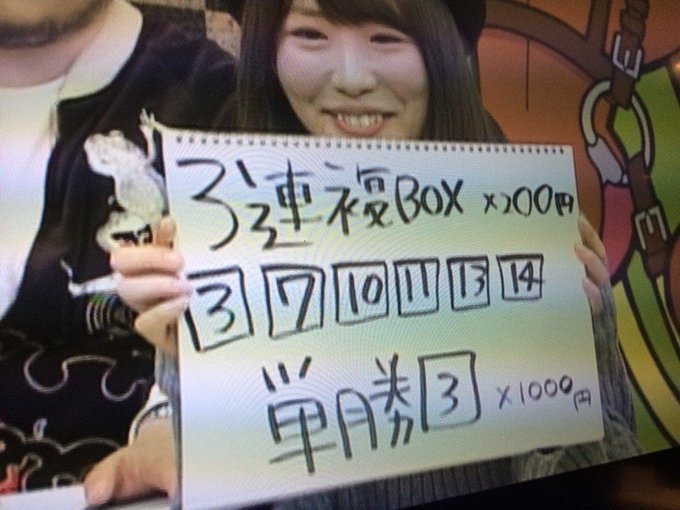 3連複BOX ×200円
3 7 10 11 13 14
単勝 3 ×1000円